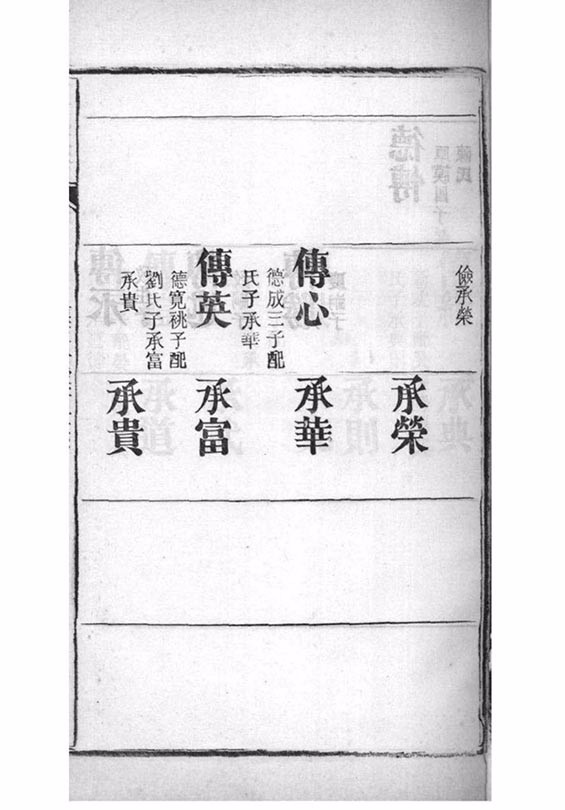 儉承榮
傳心
德成三子配
氏子承華
傳英
德寬祧子配
劉氏子承富
承貴
承榮
承華
承富
承貴